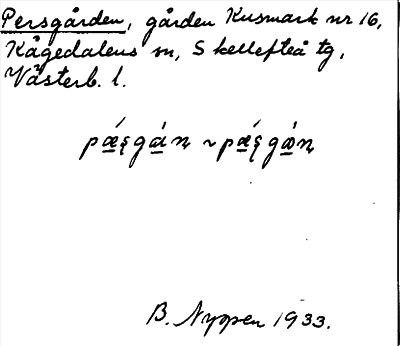 Persgården, gården Kusmark nr 16,
Kågedalens sn, Skellefteå tg,
Västerb. l.
pǽ̱ʂgá̱ɳ ~ pǽ̱ʂgώ̱ɳ
B. Nyppen 1933.